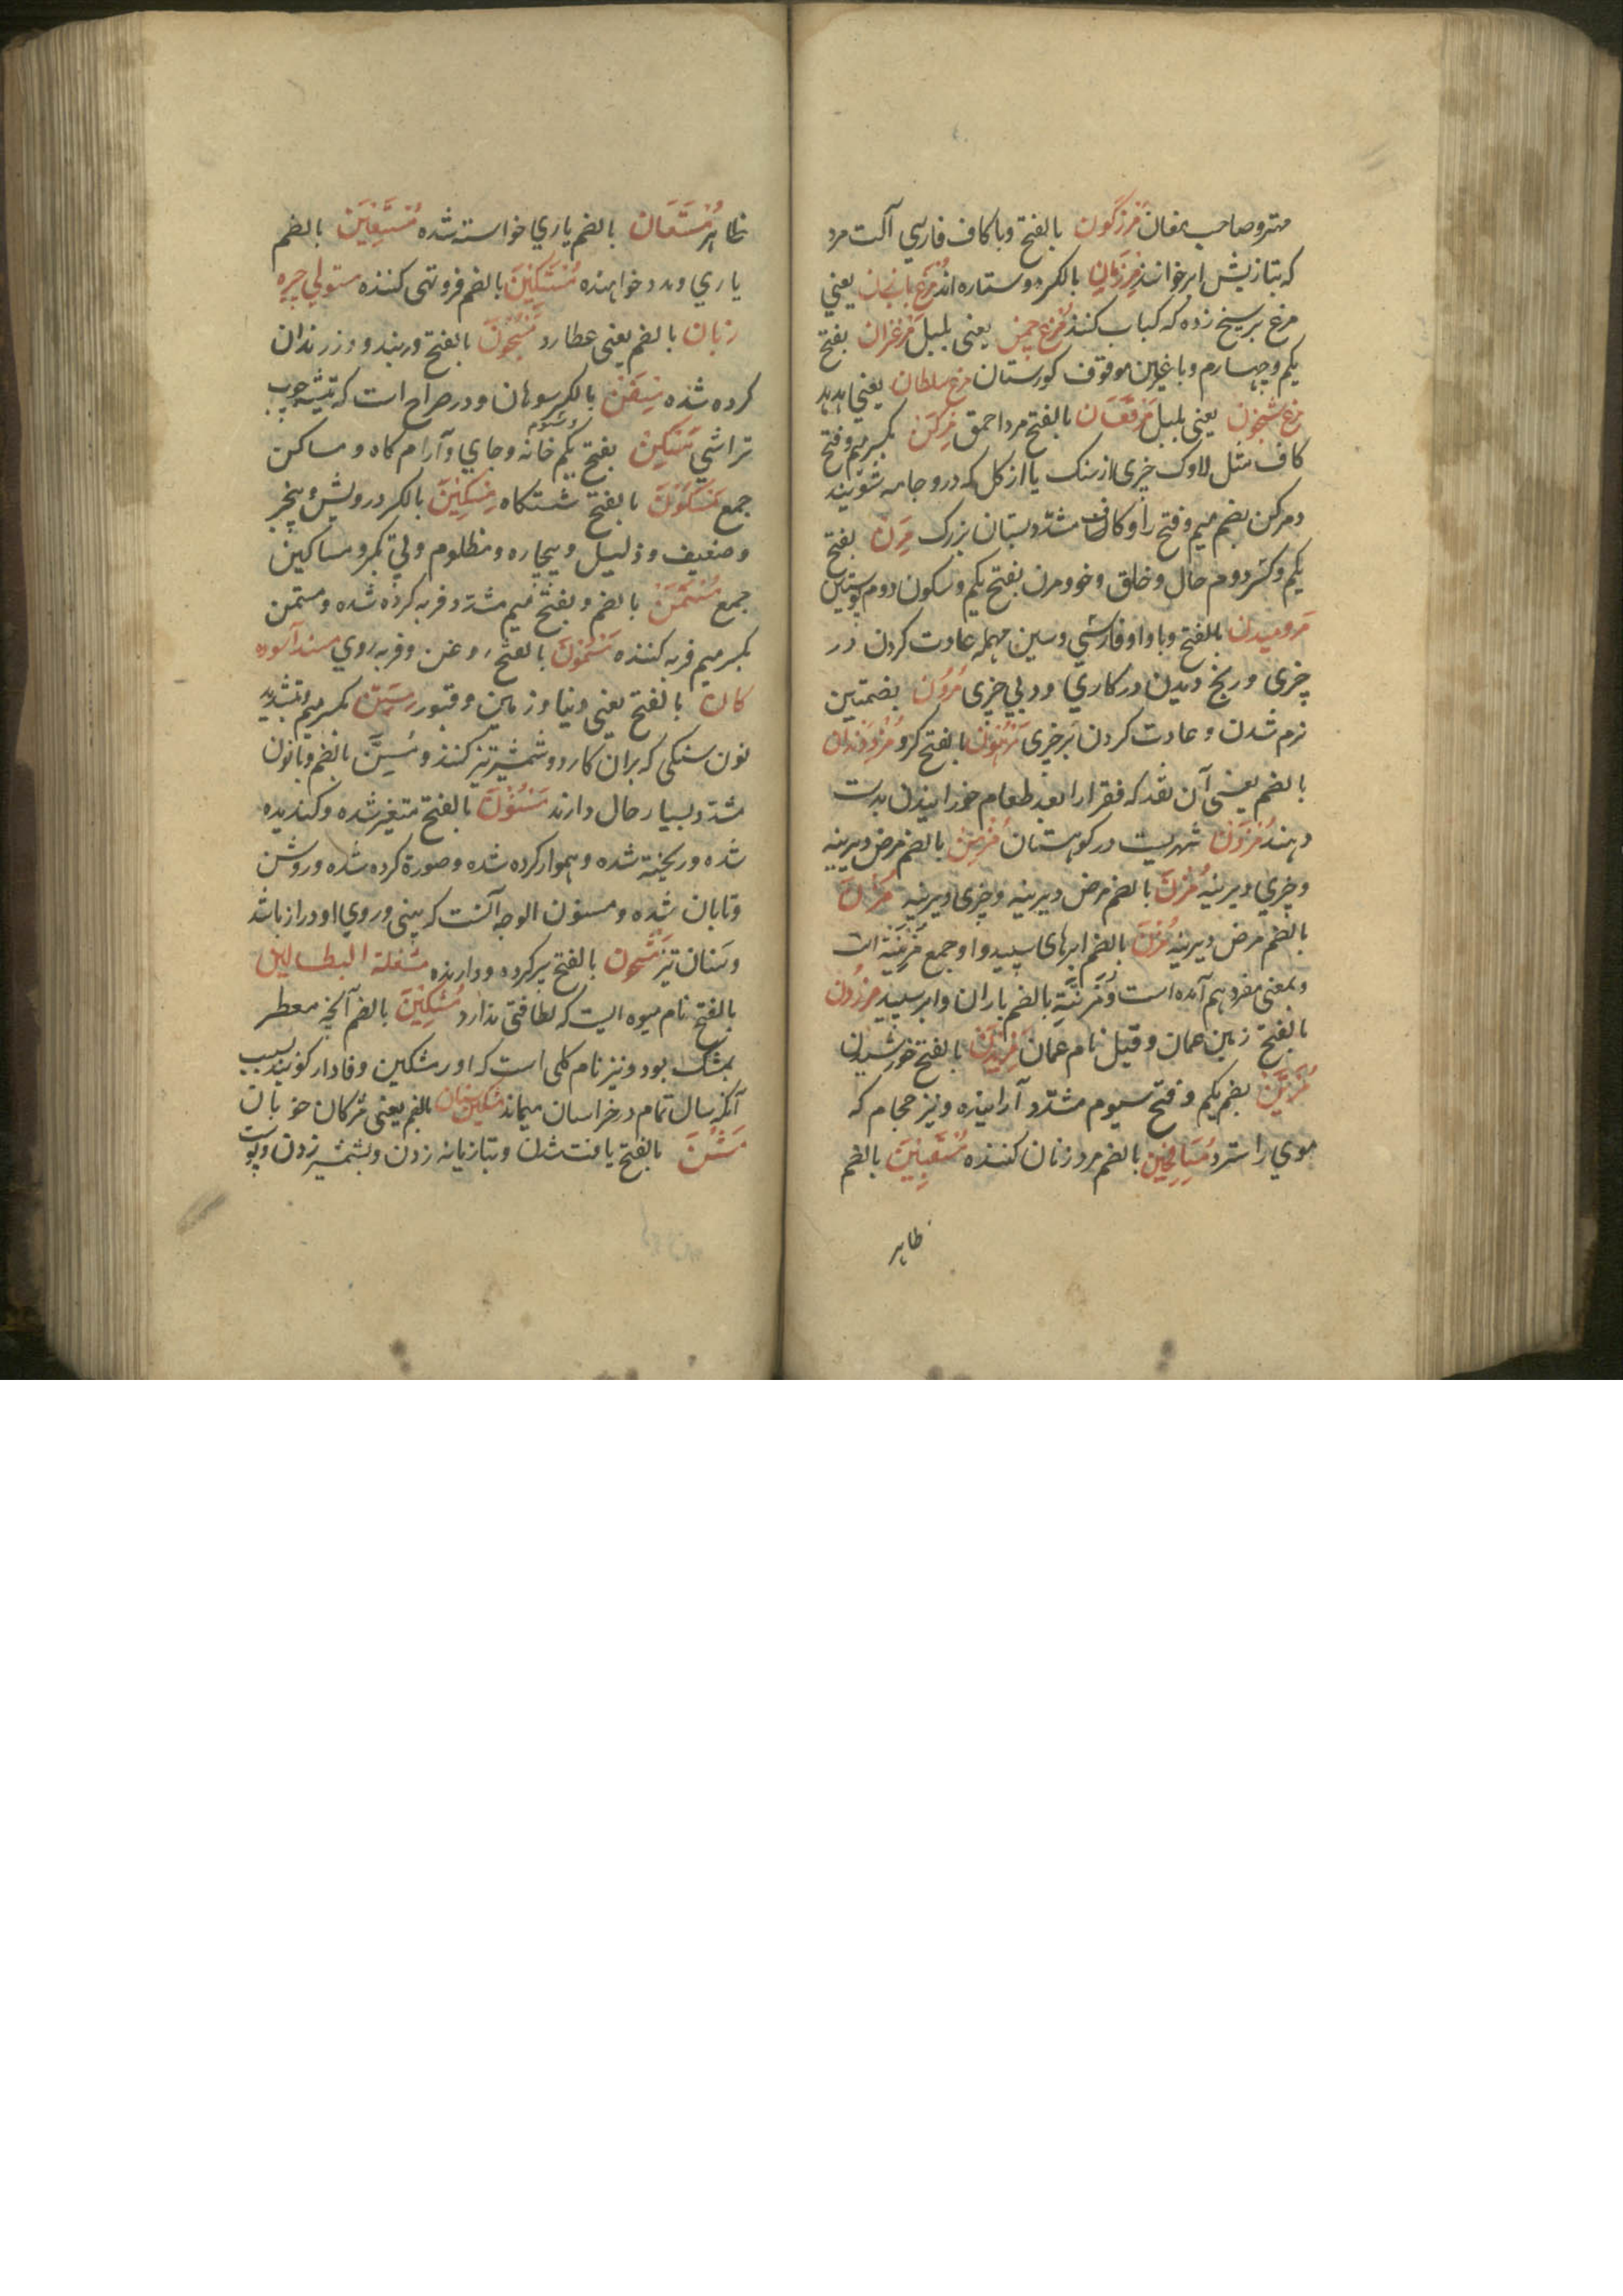 مهتر و صاحب مغان مرزگون بالفتح و با کاف فارسی آلت مرد
که بتازیش ایر خوانند مرزبان بالکسر دو ستاره اند مرغ بابزن یعنی
مرغ بر سیخ زده که کباب کنند مرغ چمن یعنی بلبل مرغزان بفتح
یکم و چهارم و با غین موقوف کورستان مرغ سلطان یعنی هدهد
مرغ شبخون یعنی بلبل مرقعان بالفتح مرد احمق مرکن بکسر میم و فتح
کاف مثل لاوک چیزی از سنک یا از کل که درو جامه شویند
و مرکن بضم میم و فتح را و کاف مشدد بستان بزرک مرن بفتح
یکم و کسر دوم حال و خلق و خو و مرن بفتح یکم و سکون دوم پوستین
مروسیدن بالفتح و با واو فارسی و سین مهمله عادت کردن در
چیزی و رنج دیدن در کاری و در پی چیزی مرون بضمتین
نرم شدن و عادت کردن بر چیزی مرهون بالفتح کرو مزد دندان
بالضم یعنی آن نقد که فقرا را بعد طعام خورانیدن بدست
دهند مزدن شهریست در کوهستان مزمن بالضم مرض دیرینه
و چیزی دیرینه مزمن بالضم مرض دیرینه و چیزی دیرینه
بالضم مرض دیرینه مزن بالضم ابرهای سپید و او جمع مزنه است
و بمعنی مفرد هم آمده است و مزنه بالضم باران و ابر سپید مزون
بالفتح زمین عمان و قیل نام عمان مزیدن بالفتح خورشیدن
مزین بضم یکم و فتح سیوم مشدد آراینده و نیز حجام که
موی را سترد مسافحین بالضم مرد زنان کننده مستبین بالضم
ظاهر
ظاهر مستعان بالضم یاری خواسته شده مستعین بالضم
یاری و مدد خواهنده مستکین بالضم فروتنی کننده مستولی چیره
زبان بالضم یعنی عطارد مسجون بالفتح در بند و در زندان
کرده شده مسفن بالکسر سوهان و در صراح است که تیشه چوب
تراشی مسکن بفتح یکم و سیوم خانه و جای و آرام کاه و مساکن
جمع مسکون بالفتح شستکاه مسکین بالکسر درویش و بیخبر
و ضعیف و ذلیل و بیچاره و مظلوم و بی تکبر و مساکین
جمع مسمن بالضم و بفتح میم مشدد فربه کرده شده و مسمن
بکسر میم فربه کننده مسمون بالفتح روغن و فربه روی مسند آسوده
کان بالفتح یعنی دنیا و زمین و قبور مسن بکسر میم و تشدید
نون سنکی که بران کارد و شمشیر تیز کنند و مسن بالضم و با نون
مشدد بسیار حال دارند مسنون بالفتح متغیر شده و کندیده
شده و ریخته شده و هموار کرده شده و صورة کرده شده و روشن
و تابان شده و مسنون الوجه آنست که بینی و روی او دراز باشد
و سنان تیز مشحون بالفتح پر کرده و دارنده مشغلة البطالین
بالفتح نام میوه ایست که لطافتی ندارد مشکین بالضم آنچه معطر
بمشک بود و نیز نام کلی است که او را مشکین وفادار کویند بسبب
آنکه سال تمام در خراسان میماند مشکین سنان بالضم یعنی مژکان خوبان
مشن بالفتح یافت شدن و بتازیانه زدن و بشمشیر زدن و پوست